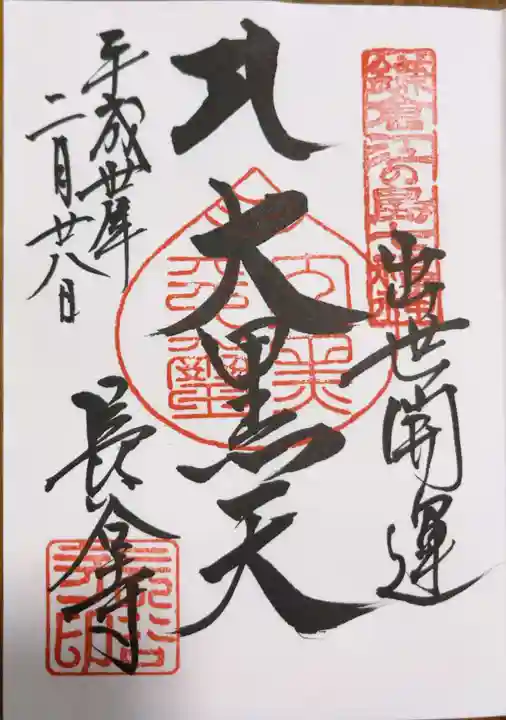 鎌倉江の島七福神
出世開運
大黒天
平成丗年
二月廿八日
長谷寺